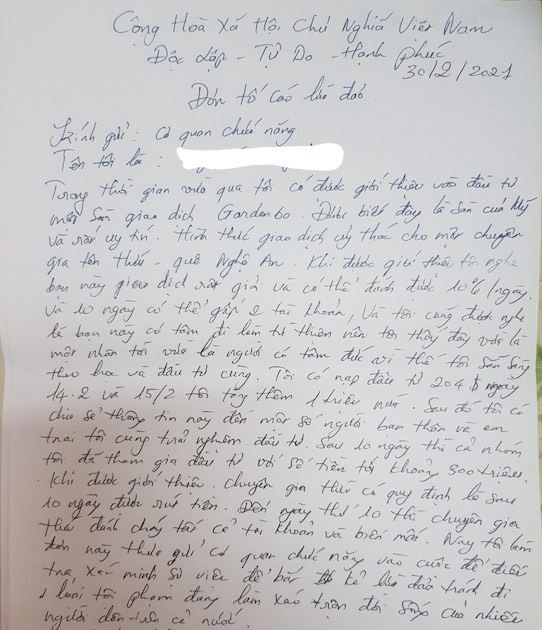 Cộng Hoà Xã Hội Chủ Nghĩa Việt Nam
Độc Lập - Tự Do - Hạnh phúc
30/2/2021
Đơn tố cáo lừa đảo.
Kính gửi: Cơ quan chức năng
Tên tôi là:
Trong thời gian vừa qua tôi có được giới thiệu vào đầu tư
một Sàn giao dịch Gardenbo. Được biết đây là Sàn của Mỹ
và rất uy tín. Hình thức giao dịch uỷ thác cho một chuyên
gia tên Thức - quê Nghệ An. Khi được giới thiệu tôi nghe
bạn này giao dịch rất giỏi và có thể đánh được 10%/ngày.
và 10 ngày có thể gấp 2 tài khoản, Và tôi cũng được nghe
là bạn này có tâm đi làm từ thiện nên tôi thấy đây vừa là
một nhân tài vừa là người có tâm đức vì thế tôi sẵn sàng
theo học và đầu tư cùng. Tôi có nạp đầu tư 204$ ngày
14.2 và 15/2 tôi thêm 1 triệu nữa. Sau đó tôi có
chia sẻ thông tin này đến một số người bạn thân và em
trai tôi cùng trải nghiệm đầu tư. Sau 10 ngày thì cả nhóm
tôi đã tham gia đầu tư với số tiền tới khoảng 300 triệu.
Khi được giới thiệu, chuyên gia Thức có quy định là sau
10 ngày được rút tiền. Đến ngày thứ 10 thì chuyên gia
Thức đánh cháy tất cả tài khoản và biến mất. Nay tôi làm
đơn này thưa gửi cơ quan chức năng vào cuộc để điều
tra xác minh sự việc để bắt kẻ lừa đảo tránh đi
1 loại tội phạm đang làm xáo trộn đời sống của nhiều
người dân trên cả nước.